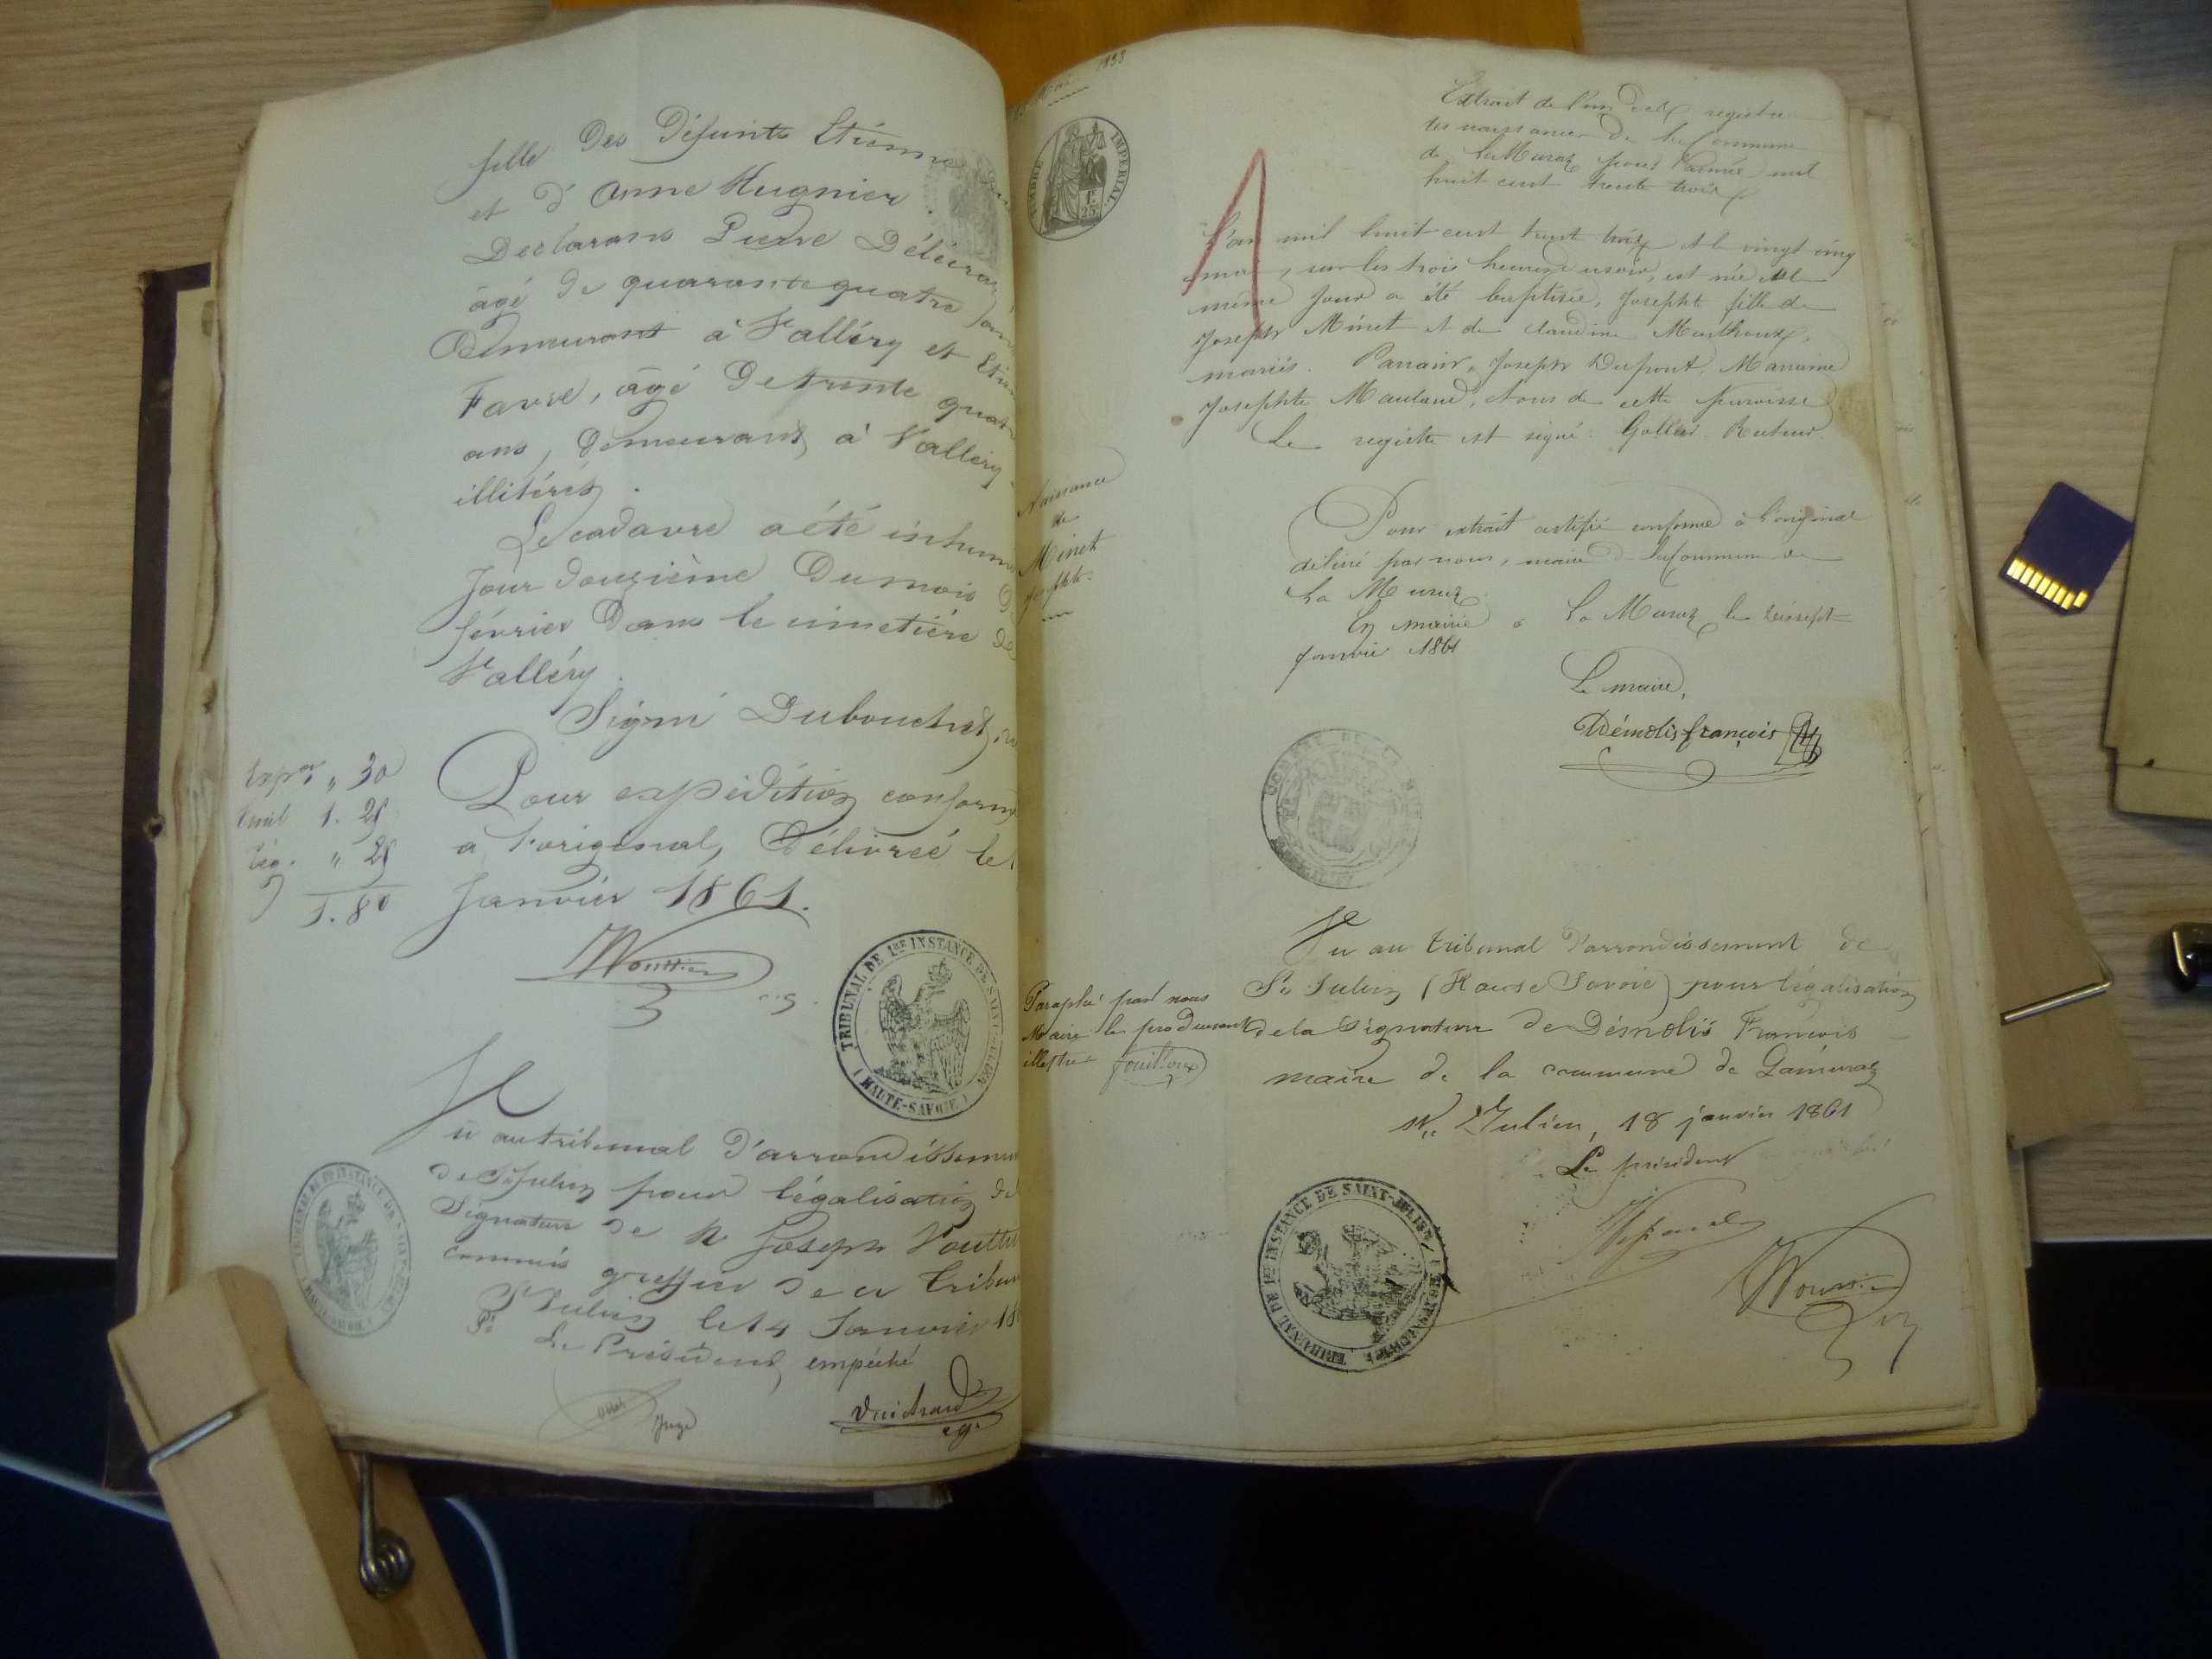 fille des défunts Etienne
et d'Anne Hugnier.
Déclarans Pierre
âgé de quarante quatre
Demeurant à Valléry et
Favre, âgé de trente
ans, demeurant à Valléry
illitérés.
Le cadavre a été inhumé
Jour douzième du mois
février dans le cimetière de
Valléry.
Signé Dubouchet,
Expon " 30
1. 25
Leg. " 25
1.80
Pour expédition conforme
a l'original, Délivrée le
Janvier 1861.
TRIBUNAL DE 1RE INSTANCE DE SAINT-JULIEN
(HAUTE-SAVOIE)
Vu au tribunal d'arrondissement
de St Julien pour légalisation de
Signature de Me Joseph
commis greffier de ce tribunal
St Julien le 14 Janvier 18
Pr Le Président empêché
Juge
Mai 1833
TIMBRE IMPERIAL
1 F. 25
Extrait de l'un des registres
des naissances de la Commune
de La Muraz pour l'année mil
huit cent trente trois.
L'an mil huit cent trente trois et le vingt cinq
mai, sur les trois heures du soir, est née et le
même jour a été baptisée, Josephte fille de
Joseph Minet et de Claudine
mariés. Parrain, Joseph Dupont, Marraine
Josephte tous de cette paroisse
Le registre est signé: Recteur
Naissance
de
Minet
Josephte
Pour extrait certifié conforme à l'original
délivré par nous, maire de la Commune de
La Muraz
En mairie à La Muraz le dixsept
Janvier 1861
Le maire,
Démolis françois
Vu au tribunal d'arrondissement de
St Julien (Haute Savoie) pour légalisation
de la Signature de Démolis François
maire de la commune de Lamuraz
St Julien, 18 janvier 1861
Le président
Paraphé par nous
Maire le produisant
illettré
TRIBUNAL DE 1RE INSTANCE DE SAINT-JULIEN
(HAUTE-SAVOIE)